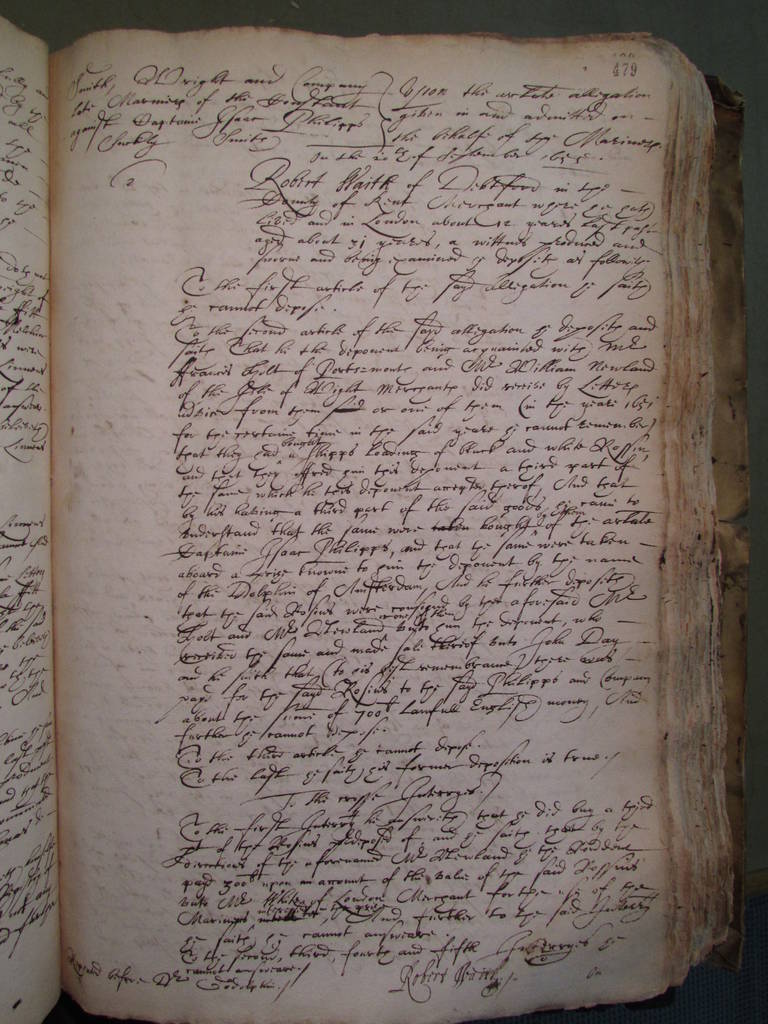 479
Smith, Wright and Company
late Mariners of the
against Captaine Isaac Phillipps
Smith
Upon the arlate allegation
given in and admitted on
the behalfe of the Mariners
On the of September
2
Robert Waith of Debtford in the
County of Kent Merchant where he hath
lived and in London about 12 yeares last past
aged about 31 yeares, a wittnes produced and
sworne and being examined he deposeth as followeth
To the first article of the sayd allegation he saith
he cannot depose.
To the second article of the sayd allegation he deposeth and
saith That he the deponent being acquainted with Mr
Francis Holt of Portesmouth and Mr William Newland
of the Isle of Wight Merchants did receive by Letters
advice from them or one of them (in the yeare 1651
for the certaine time in the said yeare he cannot remember)
that they had bought a shipps loading of black and white Rossin,
and that they offred him this deponent a third part of
the same, which he this deponent accepted thereof And that
by his haveing a third part of the said goods, he came to
understand that the same were bought of the arlate
Captaine Isaac Phillipps, and that the same were taken
aboard a prize knowne to him the deponent by the name
of the Dolphin of Amsterdam, And he further deposeth
that the said Rosins were consigned by the aforesaid Mr
Holt and Mr Newland unto him the deponent, who
received the same and made sale thereof unto John Day
and he saith that (to his best remembrance) there was
payd for the sayd Rosins to the sayd Phillipps and Company
about the summe of 700li lawfull English money, And
further he cannot depose.
To the third article he cannot depose.
To the last he saith his former deposition is true./
To the crosse Interries./
To the first Interrie he answereth that he did buy a third
pt of the Rosins predeposed of and he saith that by the
directions of the aforenamed Mr Newland he the deponent
payd 300li upon an account of the value of the said Rossins
unto Mr White of London Merchant for the use of the
Mariners And further to the said Interrie
he saith he cannot answeare.
To the second, third, fourth and fifth Interries he
cannot answeare./
Repeated before Dr Godolphin./
Robert Waith./